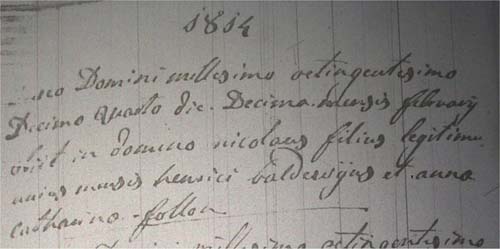 1814
no Domini millesimo octingentesimo
Decimo quarto die Decima mensis februarij
obiit in domino nicolaus filius legitimu
unius mensis henrici valderseijus et anna
catharina follon
millesimo octingentesimo